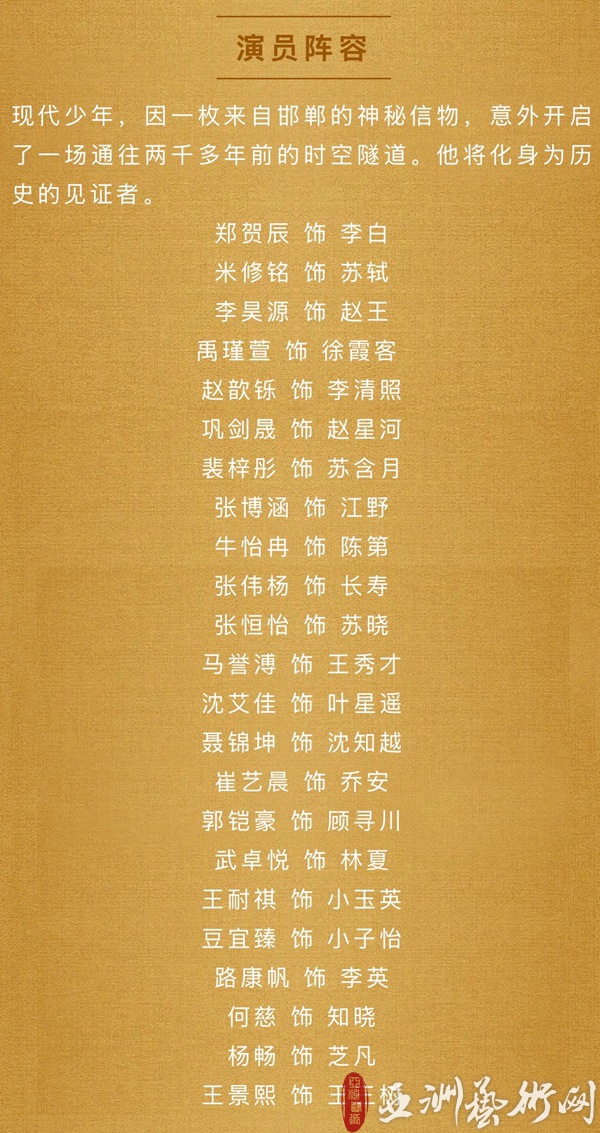 演员阵容
现代少年，因一枚来自邯郸的神秘信物，意外开启
了一场通往两千多年前的时空隧道。他将化身为历
史的见证者。
郑贺辰 饰 李白
米修铭 饰 苏轼
李昊源 饰 赵王
禹瑾萱 饰 徐霞客
赵歆铄 饰 李清照
巩剑晟 饰 赵星河
裴梓彤 饰 苏含月
张博涵 饰 江野
牛怡冉 饰 陈第
张伟杨 饰 长寿
张恒怡 饰 苏晓
马誉溥 饰 王秀才
沈艾佳 饰 叶星遥
聂锦坤 饰 沈知越
崔艺晨 饰 乔安
郭铠豪 饰 顾寻川
武卓悦 饰 林夏
王耐祺 饰 小玉英
豆宜臻 饰 小子怡
路康帆 饰 李英
何慈 饰 知晓
杨畅 饰 芝凡
王景熙 饰 王
亚洲藝術网